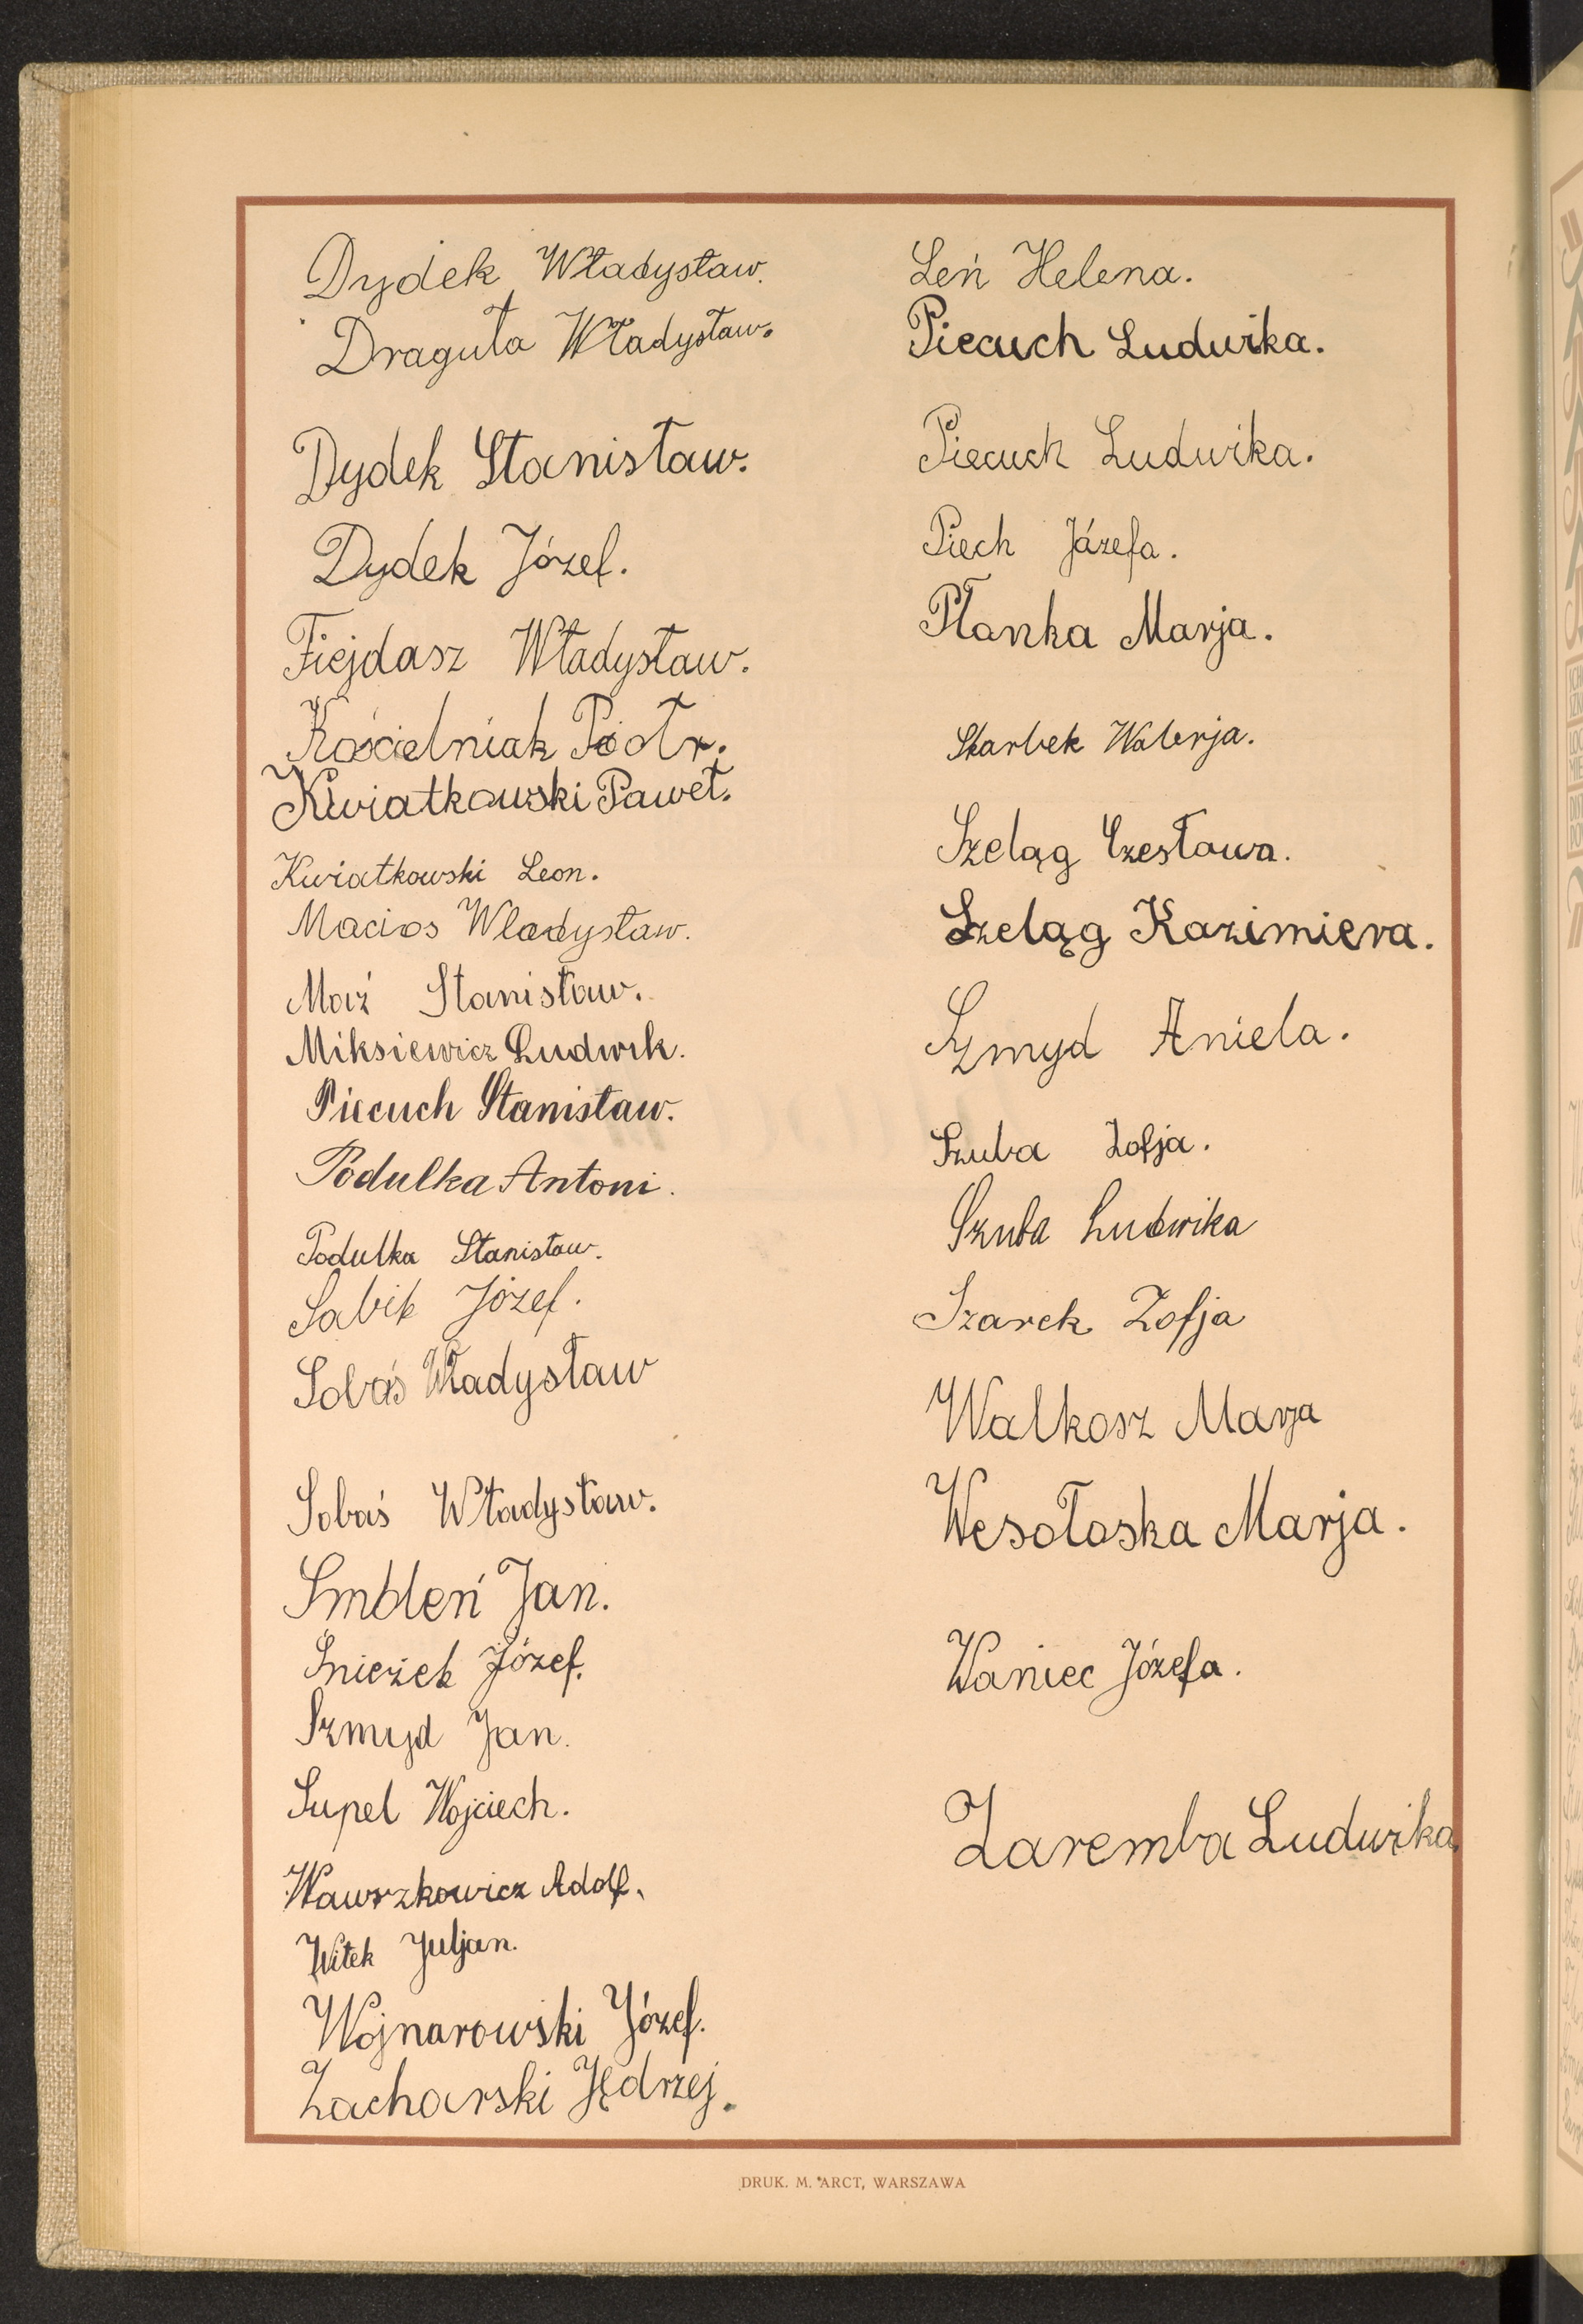 Dydek Władysław.
Draguła Władysław.
Dydek Stanisław.
Dydek Józef.
Fiejdasz Władysław.
Kościelniak Piotr.
Kwiatkowski Paweł.
Kwiatkowski Leon.
Macios Władysław.
Maź Stanisław.
Miksiewicz Ludwik.
Piecuch Stanisław.
Podulka Antoni.
Podulka Stanisław.
Sabik Józef.
Sobaś Władysław
Sobaś Władysław.
Smoleń Jan.
Snieżek Józef.
Szmyd Jan.
Supel Wojciech.
Wawszkowicz Adolf.
Witek Juljan.
Wojnarowski Józef.
Zacharski Jędrzej.
Leń Helena.
Piecuch Ludwika.
Piecuch Ludwika.
Piech Józefa.
Płonka Marja.
Skarbek Walerja.
Szeląg Czesława.
Szeląg Kazimiera.
Szmyd Aniela.
Szuba Zofja.
Szuba Ludwika
Szarek Zofja
Walkosz Marja
Wesołoska Marja.
Waniec Józefa.
Zaremba Ludwika.
DRUK. M. ARCT, WARSZAWA